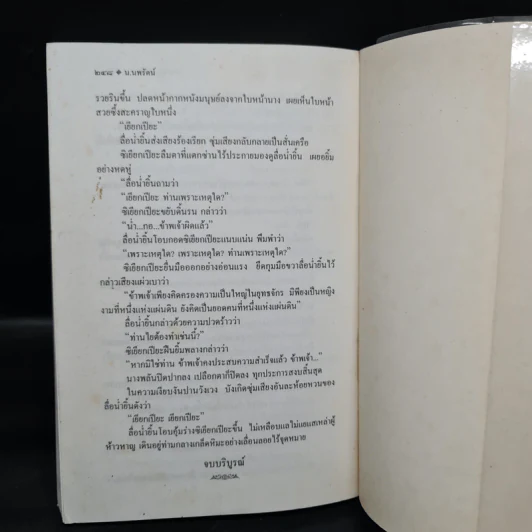 ๒๔๘ ◆ น.นพรัตน์
รวยรินขึ้น ปลดหน้ากากหนังมนุษย์ลงจากใบหน้านาง เผยเห็นใบหน้า
สวยซึ้งสะคราญใบหนึ่ง
"เยียกเปียะ"
ลื่อน่ำยิ้นส่งเสียงร้องเรียก ซุ่มเสียงกลับกลายเป็นสั่นเครือ
ซิเยียกเปียะลืมตาที่แตกซ่านไร้ประกายมองดูลื่อน่ำยิ้น เผยอยิ้ม
อย่างหดหู่
"ลื่อน่ำยิ้นถามว่า
"เยียกเปียะ ท่านเพราะเหตุใด?"
ซิเยียกเปียะขยับดิ้นรน กล่าวว่า
"น่ำ...กอ...ข้าพเจ้าผิดแล้ว"
ลื่อน่ำยิ้นโอบกอดซิเยียกเปียะแนบแน่น พึมพำว่า
"เพราะเหตุใด? เพราะเหตุใด? ท่านเพราะเหตุใด?"
ซิเยียกเปียะยื่นมือออกอย่างอ่อนแรง ยึดกุมมือขวาลื่อน่ำยิ้นไว้
กล่าวเสียงแผ่วเบาว่า
"ข้าพเจ้าเพียงคิดครองความเป็นใหญ่ในยุทธจักร มิเพียงเป็นหญิง
งามที่หนึ่งแห่งแผ่นดิน ยังคิดเป็นยอดคนที่หนึ่งแห่งแผ่นดิน"
ลื่อน่ำยิ้นกล่าวด้วยความปวดร้าวว่า
"ท่านไยต้องทำเช่นนี้?"
ซิเยียกเปียะฝืนยิ้มพลางกล่าวว่า
"หากมิใช่ท่าน ข้าพเจ้าคงประสบความสำเร็จแล้ว ข้าพเจ้า..."
นางพลันปิดปากลง เปลือกตาก็ปิดลง ทุกประการสงบสิ้นสุด
ในความเงียบงันปานวังเวง บังเกิดซุ่มเสียงอันละห้อยหวนของ
ลื่อน่ำยิ้นดังว่า
"เยียกเปียะ เยียกเปียะ"
ลื่อน่ำยิ้นโอบอุ้มร่างซิเยียกเปียะขึ้น ไม่เหลือบแลไม่แยแสเหล่าผู้
ห้าวหาญ เดินอยู่ท่ามกลางเกล็ดหิมะอย่างเลื่อนลอยไร้จุดหมาย
จบบริบูรณ์